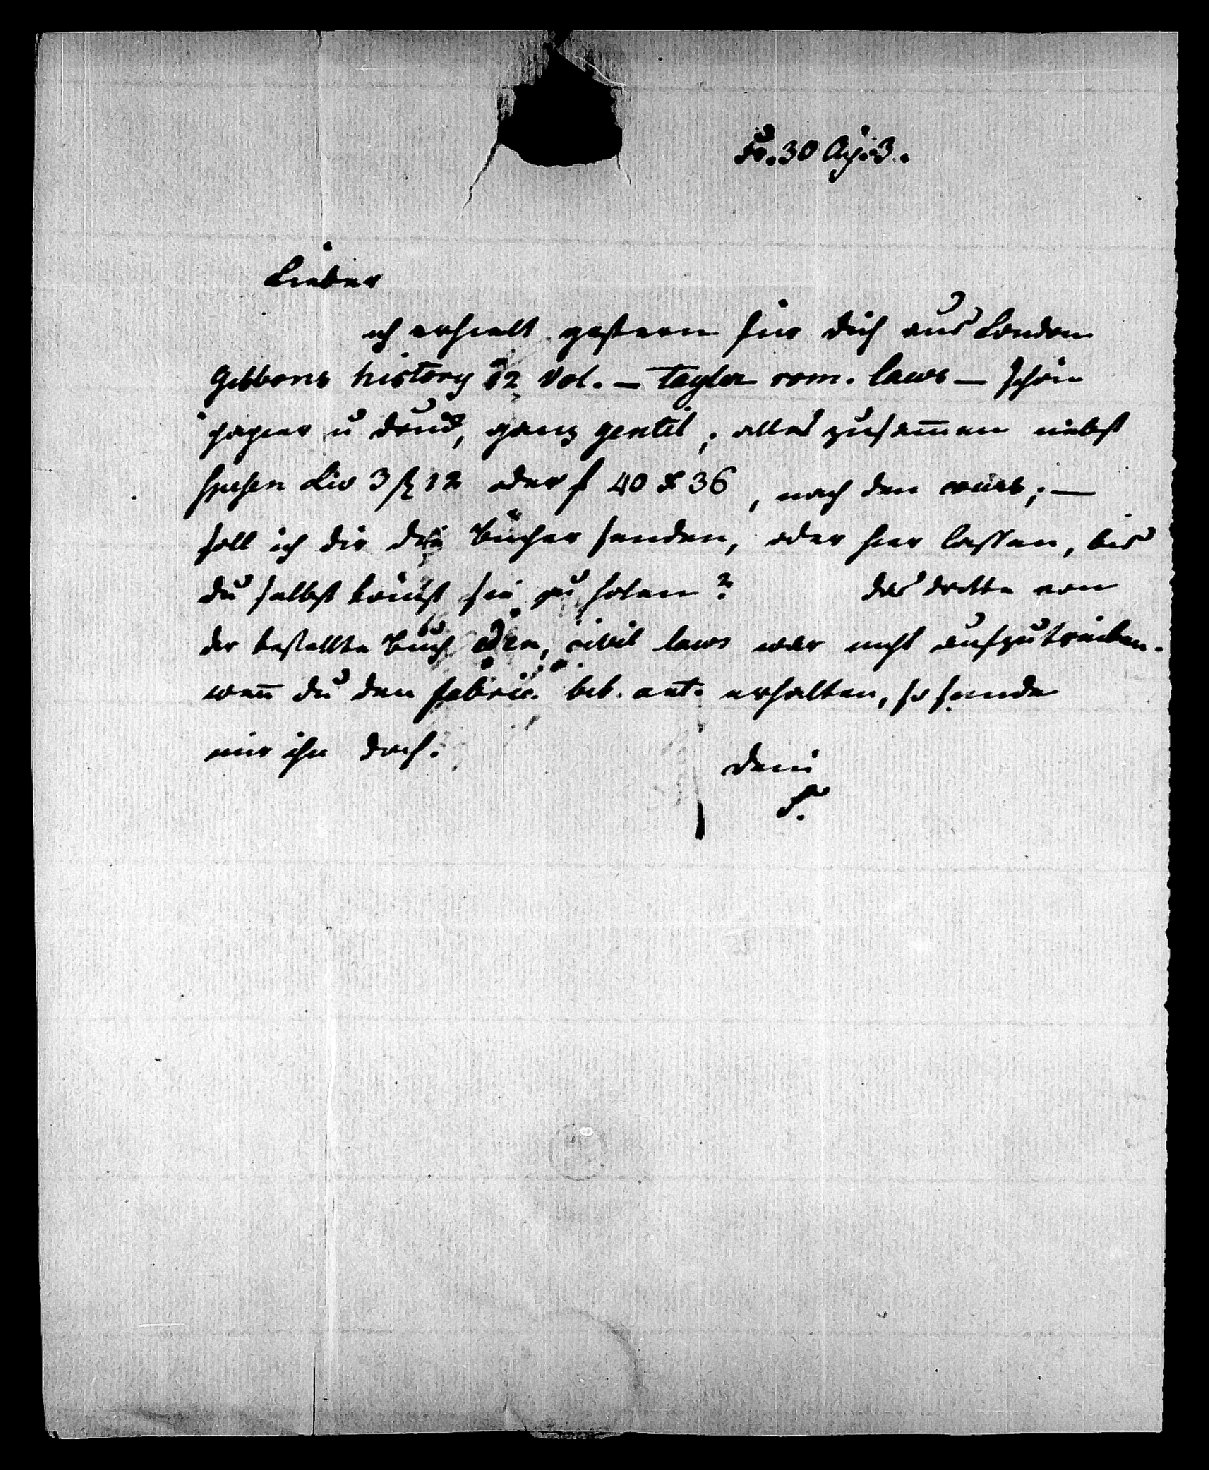 Fr. 30 Ap. 3.
Lieber
ich erhielt gestern für dich aus London
Gibbons history 12 Vol. – Taylor rom. laws – schön
papier u druck, ganz gentil; alles zusammen nebst
spesen Liv 3 ß 12 oder f 40 x 36, nach den cours; –
soll ich dir die Bücher senden, oder hier lassen, bis
du selbst kömst sie zu holen? das dritte von
dir bestellte Buch civil laws war nicht aufzutreiben.
wenn du den fabric. bib. ant. erhalten, so sende
mir ihn doch.
dein
F.